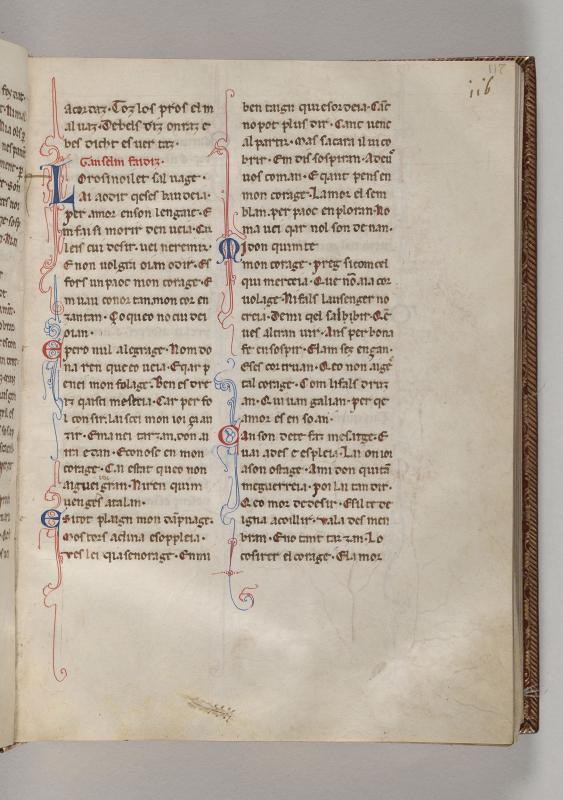 116
acordaz. Toz los pros el m
al uaz. Debels diz onraz e
bes dicht es uer taz.
Ganselm faidiz.
Lo rosinoilet saluage.
Ai aodit qeses baudeia.
per amor enson lengatge. E
m fai si morir den ueia. Ca
leis cui desir. uei neremir.
E non uolgra oian odir. Es
fors un paoc mon corage. E
m uau conortan. mon cor en
zantan. Co qeo no cui dei
oian.
Espero nul alegrage. Nom do
na ren qeu eo ueia. Eqar p
enei mon folage. Ben es dre
iz qaisi mescria. Car per fo
l consir. laiscei mon ioi ga an
zir. Emanei tarzan. don ai
ira edan. Econosc en mon
corage. Cai estat queo non
aiguei gran. Niren quim
uenges atalan.
E sitot plaign mon dapnage.
Mos tors aclina esoppleia.
Ves lei qui asenorage. En mi
ben taign qui esordeia. Cant
no pot plus dir. Cant uenc
al partir. Mas sa cara il ui co
brir. Em dis sospiran. A deu
uos coman. E qant pens en
mon corage. Lamor el sem
blan. per paoc enploran. No
ma uei qar nol son de nan.
Midon quim te
mon corage. preg si com cel
qui merceia. Que non aia cor
uolage. Ni fals lausenger no
creia. De mi qel sal bibir. Qe
ues altran uir. Ans per bona
fe en sospir. Elam sez engan.
Eses cor truan. Qeo non aige
tal corage. Com li fals druz
an. Qui uan galian. per qe
amor es en soan.
Canson de te faz mesatge. E
uai ades e espleia. Lai on ioi
a son ostage. A midon quitan
me guerreia. poi lai tan dir.
Qeo mor dedesir. E sil te de
igna acoillir. vala des men
bran. E no tant tarzan. Lo
cosirer el corage. El amor